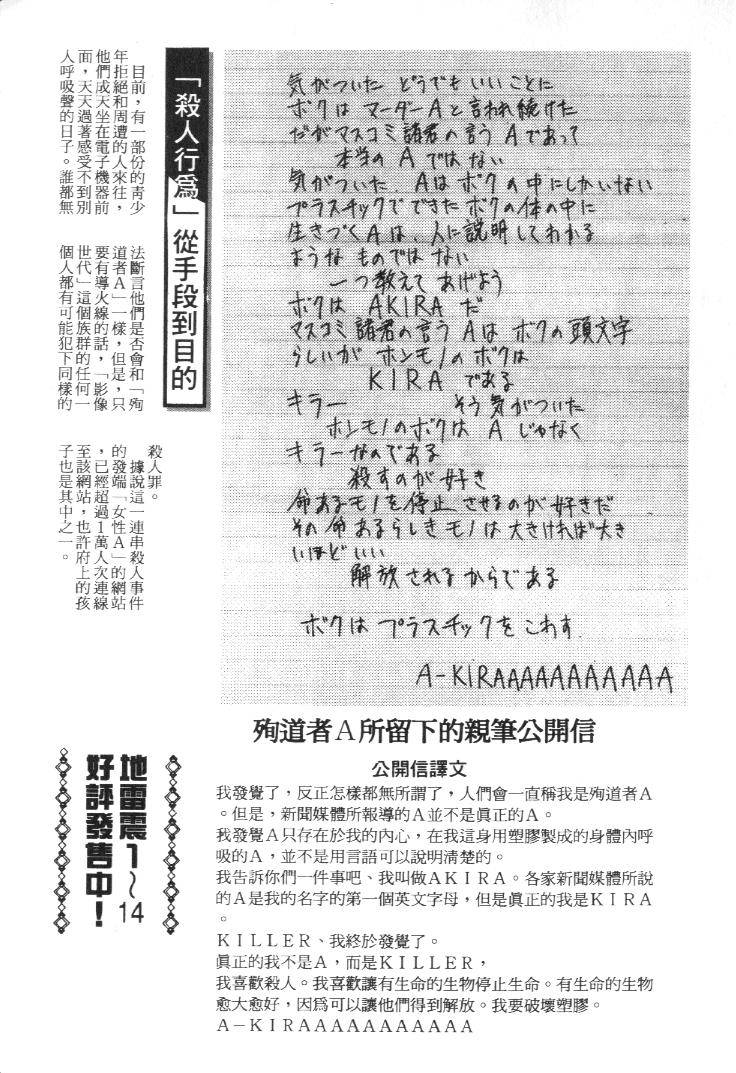 「殺人行為」從手段到目的
目前，有一部份的青少
年拒絕和周遭的人來往，
他們成天坐在電子機器前
面，天天過著感受不到別
人呼吸聲的日子。誰都無
法斷言他們是否會和「殉
道者Ａ」一樣，但是，只
要有導火線的話，「影像
世代」這個族群的任何一
個人都有可能犯下同樣的
殺人罪。
據說這一連串殺人事件
的發端「女性Ａ」的網站
，已經超過１萬人次連線
至該網站，也許府上的孩
子也是其中之一。
気がついた どうでもいいことに
ボクは マーダーAと言われ続けた
だがマスコミ諸君の言う Aであって
本当の A ではない
気がついた、Aは ボクの中にしかいない
プラスチックでできたボクの体の中に
生きづくAは、人に説明してわかる
ようなものではない
一つ教えてあげよう
ボクは AKIRA だ
マスコミ諸君の言う Aは ボクの頭文字
らしいが ホンモノのボクは
KIRA である
キラー そう気がついた
ホンモノのボクは A じゃなく
キラーなのである
殺すのが好き
命あるモノを停止させるのが好きだ
その命あるらしきモノは大きければ大き
いほどいい
解放されるからである
ボクは プラスチックを こわす
A-KIRAAAAAAAAAAA
殉道者Ａ所留下的親筆公開信
公開信譯文
我發覺了，反正怎樣都無所謂了，人們會一直稱我是殉道者Ａ
。但是，新聞媒體所報導的Ａ並不是眞正的Ａ。
我發覺Ａ只存在於我的內心，在我這身用塑膠製成的身體內呼
吸的Ａ，並不是用言語可以說明清楚的。
我告訴你們一件事吧、我叫做ＡＫＩＲＡ。各家新聞媒體所說
的Ａ是我的名字的第一個英文字母，但是眞正的我是ＫＩＲＡ
。
ＫＩＬＬＥＲ、我終於發覺了。
眞正的我不是Ａ，而是ＫＩＬＬＥＲ，
我喜歡殺人。我喜歡讓有生命的生物停止生命。有生命的生物
愈大愈好，因爲可以讓他們得到解放。我要破壞塑膠。
Ａ－ＫＩＲＡＡＡＡＡＡＡＡＡＡＡ
地雷震1～14
好評發售中！